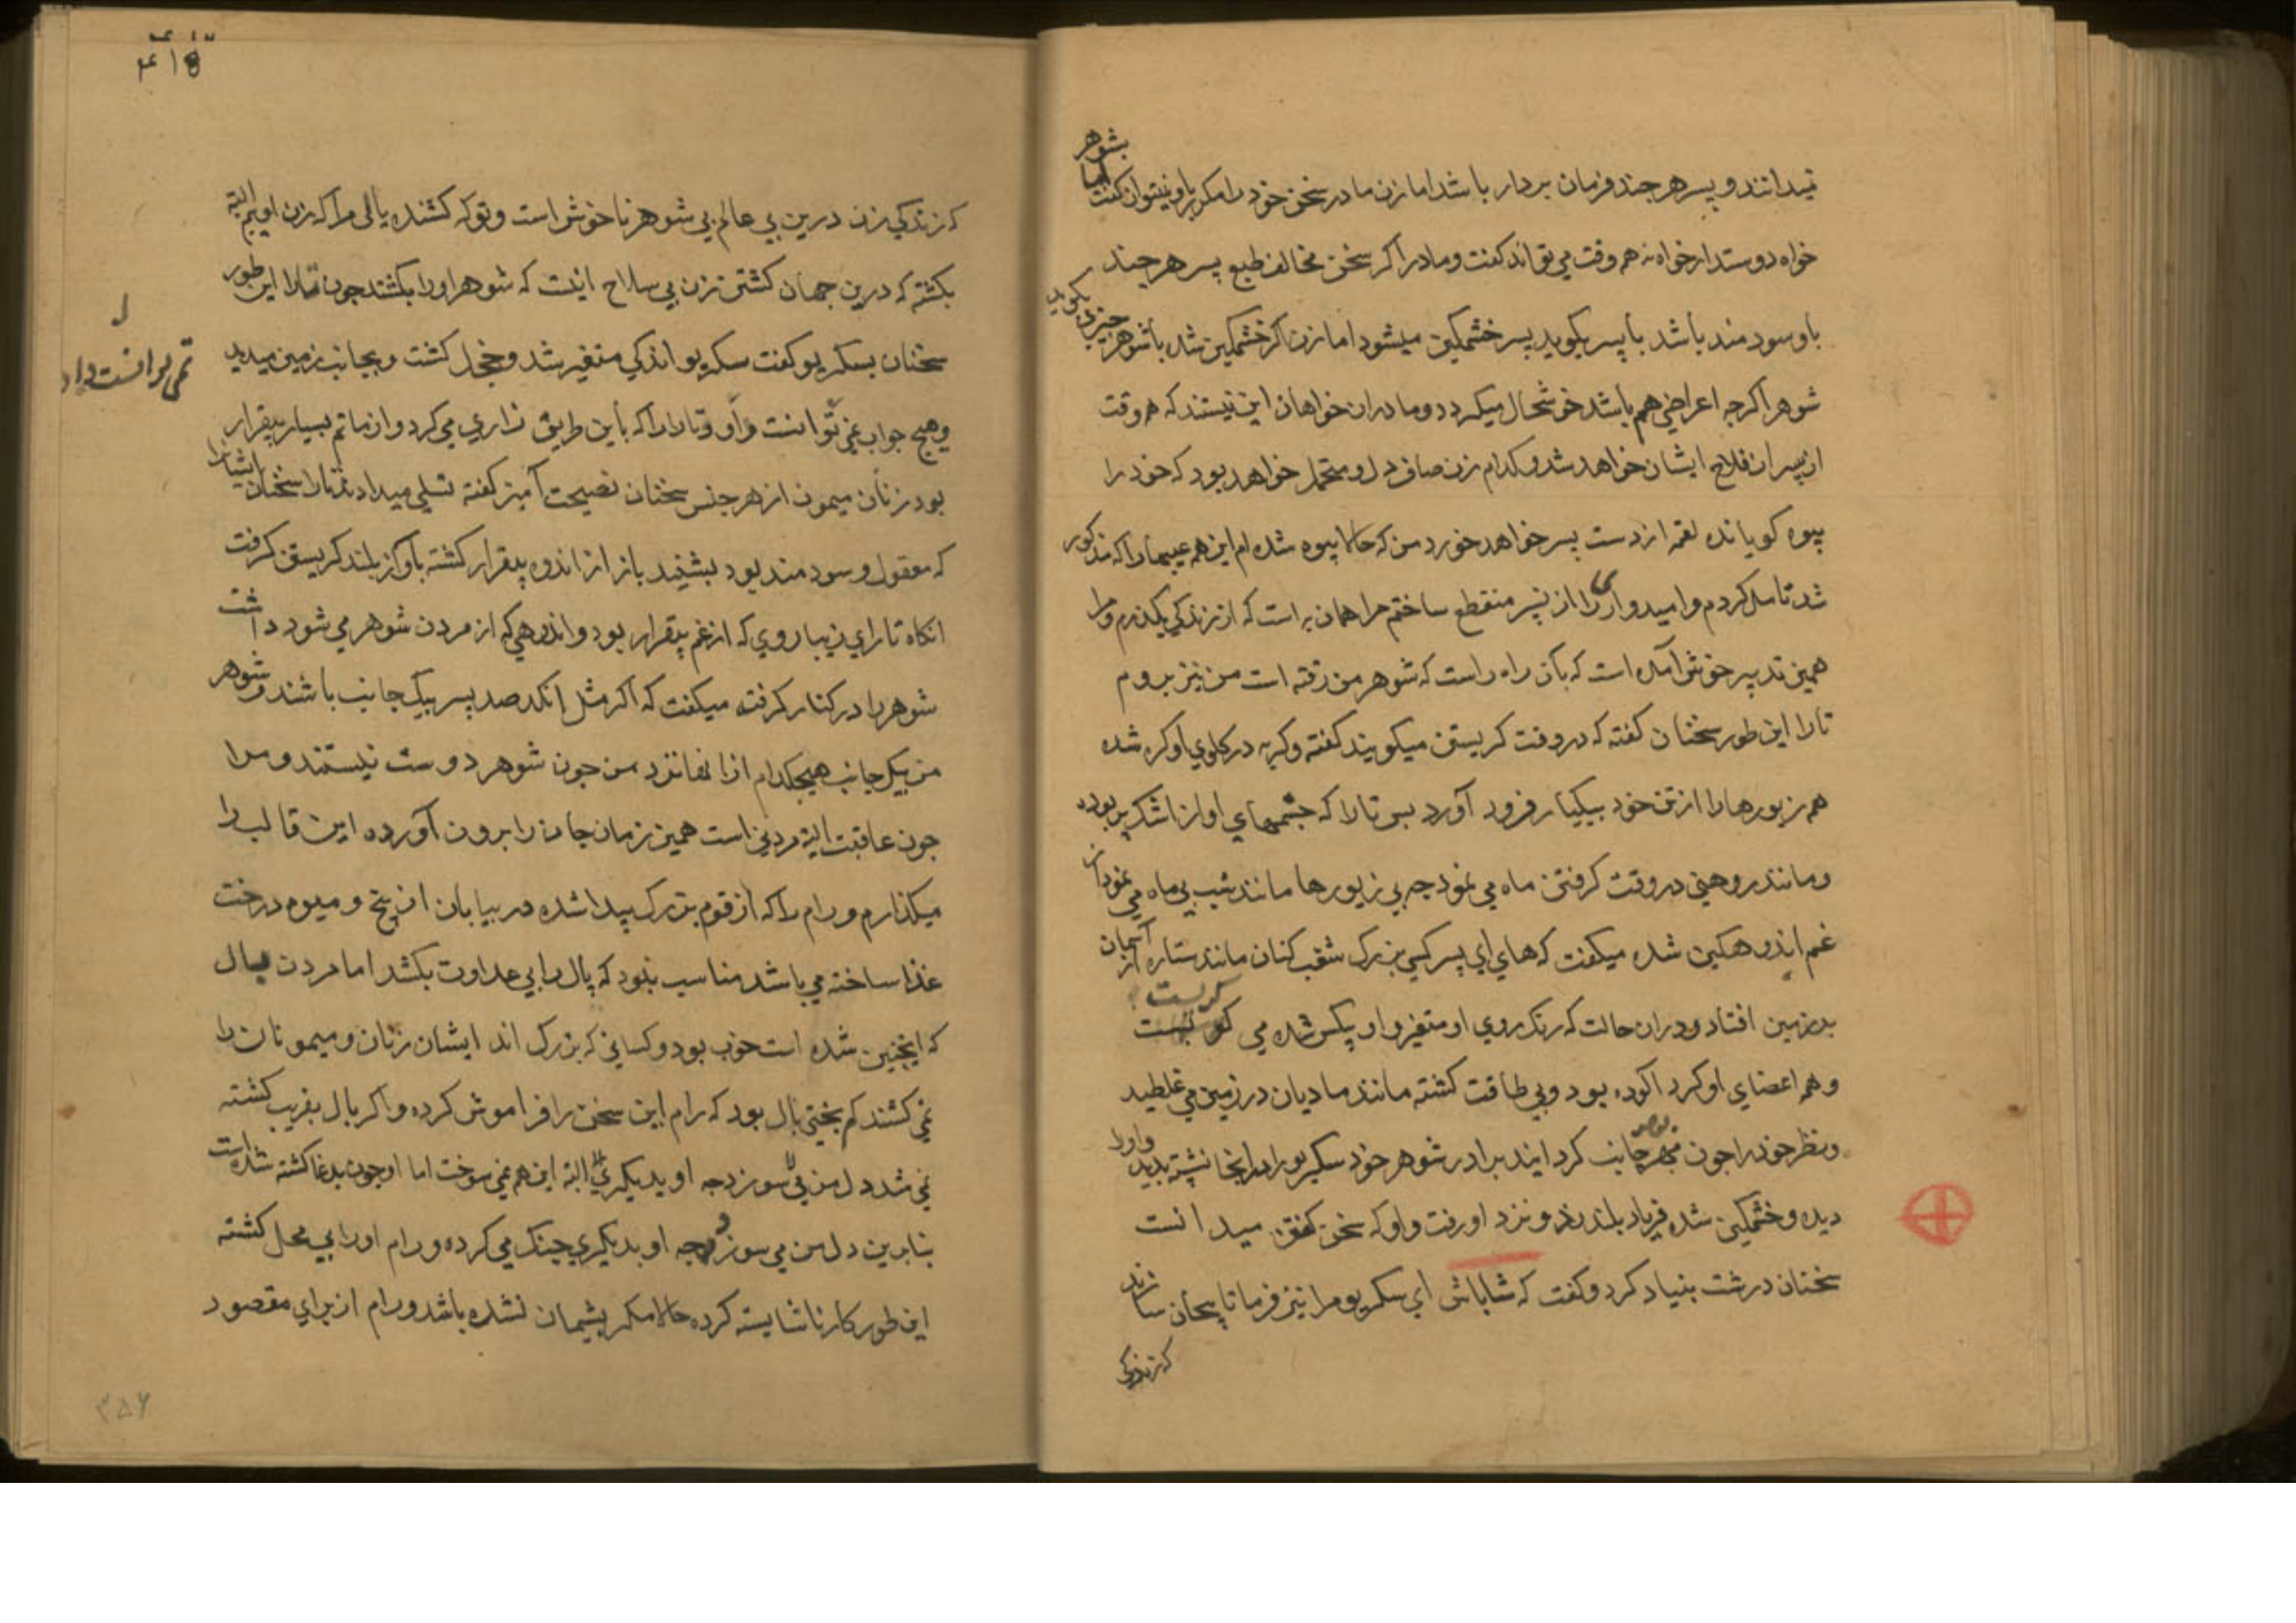 نمیدانند و پسر هر چند فرمان بردار باشد اما زن مادر سخن خود را مکرر باو نمیتوان گفت اما بشوهر
خواه دوستدار خواه نه همه وقت می تواند گفت و مادر اگر سخن مخالف طبع پسر هر چند
باو سودمند باشد با پسر بکوید پسر خشمکین میشود اما زن اگر خشمکین شده با شوهر چیزی بکوید
شوهر اگرچه اعراضی هم باشد خوشحال میکردد و مادران خواهان این نیستند که همه وقت
از پسران فلاح ایشان خواهد شد و کدام زن صاف دل و متحمل خواهد بود که خود را
بیوه کویانده لقمه از دست پسر خواهد خورد من که حالا بیوه شده ام این همه عیبها را که مذکور
شد تامل کردم و امیدواری را از پسر منقطع ساختم مرا همان به است که از زندکی بکذرم و مرا
همین تدبیر خوش آمده است که بآن راه راست که شوهر من رفته است من نیز بروم
تارا این طور سخنان کفته که در وقت کریستن میکویند کفته و کریه در کلوی او کره شده
همه زیورها را از تن خود بیکبار فرود آورد پس تارا که چشمهای او از اشک پر بوده
و مانند روهنی در وقت کرفتن ماه می نمود چه بی زیورها مانند شب بی ماه می نمود از
غم اندوهکین شده میکفت که های ای پسر کسی بزرک شغب کنان مانند ستاره از آسمان
بر زمین افتاد و دران حالت که رنک روی او متغیر و او بیکس شده می کریست
و همه اعضای او کرد آلوده بود و بی طاقت کشته مانند مادیان در زمین می غلطید
و نظر خود را چون بهر جانب کردانید برادر شوهر خود سکریو را در انجا نشسته بدید و او را
دیده و خشمکین شده فریاد بلند زد و نزد او رفت و او که سخن کفتن میدانست
سخنان درشت بنیاد کرد و کفت که شاباش ای سکریو مرا نیز فرما تا بیجان سازند
که زندکی
۴۱۵
که زندکی زن درین بی عالم بی شوهر ناخوش است و تو که کشنده بالی مرا که زن اویم البته
بکشته که درین جهان کشتن زن بی سلاح اینست که شوهر او را بکشند چون تارا این طور
سخنان بسکریو کفت سکریو اندکی متغیر شد و خجل کشت و بجانب زمین میدید
و هیچ جواب نمی توانست داد و تارا را که باین طریق زاری می کرد و از ماتم بسیار بیقرار
بود زنان میمون از هر جنس سخنان نصیحت آمیز کفته تسلی میدادند تارا سخنان ایشان را
که معقول و سودمند بود بشنید باز از اندوه بیقرار کشته بآواز بلند کریستن کرفت
انکاه تارای زیبا روی که از غم بیقرار بود و اندوهی که از مردن شوهر می شود داشت
شوهر را در کنار کرفته میکفت که اکر مثل انکد صد پسر بیک جانب باشند و شوهر
من بیک جانب هیچکدام از انها نزد من چون شوهر دوست نیستند و مرا
چون عاقبت البته مردنی است همین زمان جان را برون آورده این قالب را
میکذارم و رام را که از قوم بزرک پیدا شده در بیابان از بیخ و میوه درخت
غذا ساخته می باشد مناسب نبود که بال را بی عداوت بکشد اما مردن بال
که اینچنین شده است خوب بود و کسانی که بزرک اند ایشان زنان و میمونان را
نمی کشند کم بختی بال بود که رام این سخن را فراموش کرده و اکر بال بفریب کشته
نمی شد دل من نمی سوزد چه او بدیکری البته این هم نمی سوخت اما او چون بدغا کشته شده است
بنابرین دل من می سوزد چه او بدیکری جنک می کرده و رام او را بی محل کشته
این طور کار ناشایسته کرده حالا مکر پشیمان نشده باشد و رام از برای مقصود
۳۵۶